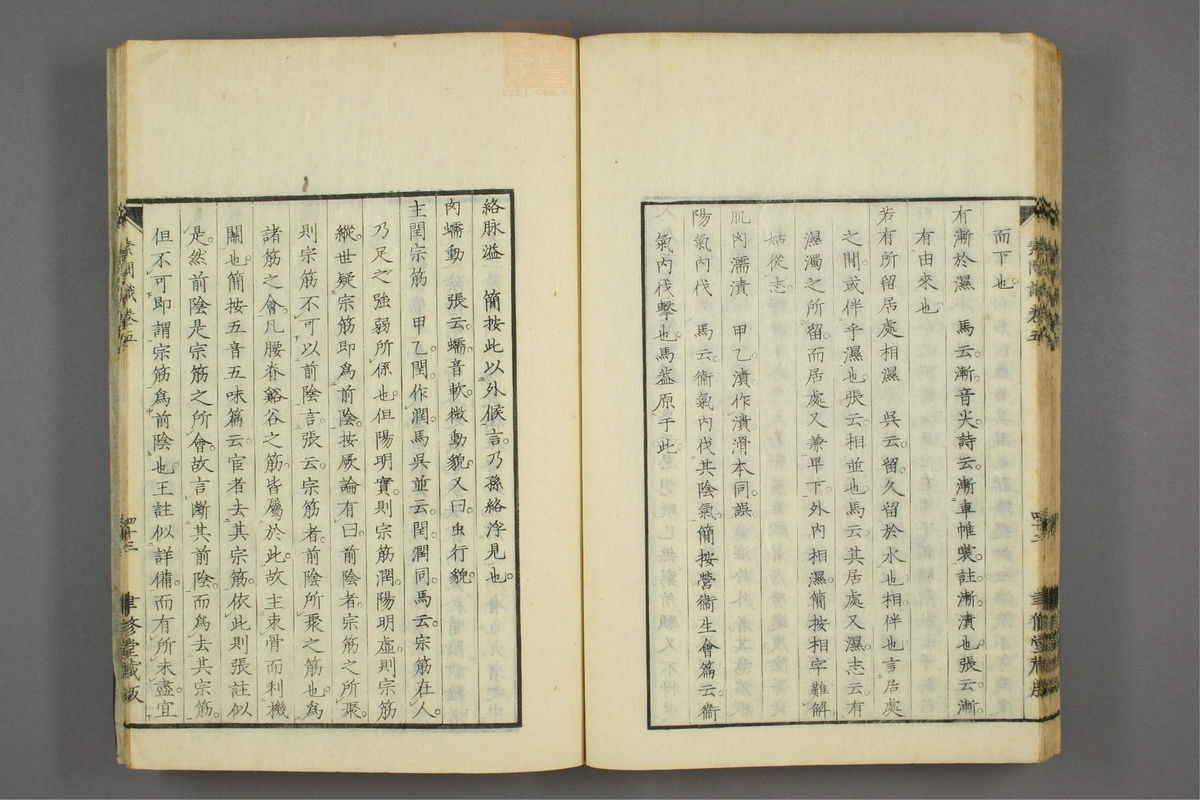 而下也。
有漸於濕　馬云。漸。音尖。詩云。漸車帷裳。註漸。漬也。張云。漸。
有由來也
若有所留居處相濕　吳云。留。久留於水也。相。伴也。言居處
之間。或伴乎濕也。張云。相並也。馬云。其居處又濕。志云。有
濕濁之所留。而居處又兼卑下。外內相濕。簡按相字難解。
姑從志。
肌肉濡漬　甲乙。漬作潰。滑本同。誤。
陽氣內伐　馬云。衞氣內伐其陰氣。簡按營衞生會篇云。衞
氣內伐擊也。馬蓋原于此。
素問識卷五
四十三
聿修堂藏版
絡脉溢　簡按此以外候言。乃孫絡浮見也。
肉蠕動　張云。蠕。音軟。微動貌。又曰。虫行貌。
主閏宗筋　甲乙。閏。作潤。馬吳並云。閏。潤同。馬云。宗筋在人。
乃足之強弱所係也。但陽明實。則宗筋潤。陽明虛。則宗筋
縱。世疑宗筋即爲前陰。按厥論有曰。前陰者。宗筋之所聚。
則宗筋不可以前陰言。張云。宗筋者。前陰所聚之筋也。爲
諸筋之會。凡腰脊谿谷之筋。皆屬於此。故主束骨而利機
關也。簡按五音五味篇云。宦者去其宗筋。依此則張註似
是。然前陰是宗筋之所會。故言斷其前陰。而爲去其宗筋。
但不可即謂宗筋爲前陰也。王註似詳備。而有所未盡。宜